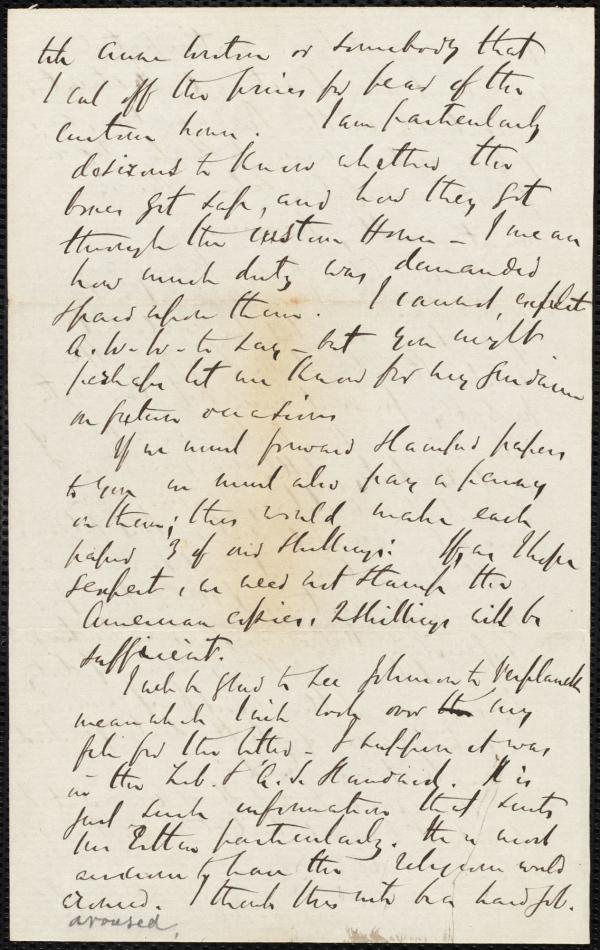 tell Anne Weston or somebody that
I cut off the prices for fear of the
custom house. I am particularly
desirous to know whether the
boxes got safe, and how they got
through the Custom House – I mean
how much duty was demanded
& paid upon them. I cannot expect
A. W. W. to say – but you might
perhaps let me know for my guidance
on future occasions
If we must forward stamped papers
to you we must also pay a penny
on them; this would make each
paper 3 of our shillings. If, as I hope
& expect, we need not stamp the
American copies, 2 shillings will be
sufficient.
I will be glad to see Johnson to Verplanck
meanwhile I will look over the my
file for the letter – I suppose it was
in the Lib. & A. S. Standard. It is
just such information that suits
him particularly. He is most
anxious to have the religious world
aroused. I think this will be a hard job.
aroused,